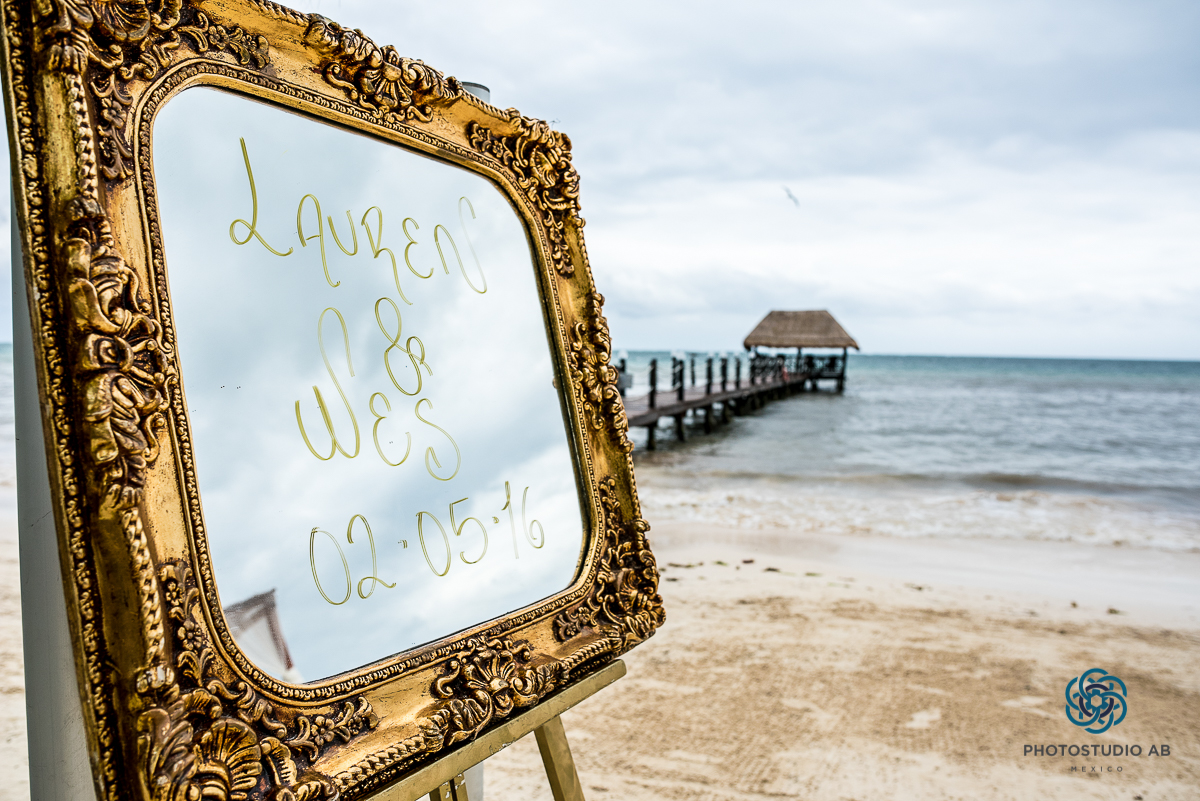 LAUREN
&
WES
02.05.16
PHOTOSTUDIO AB
MEXICO